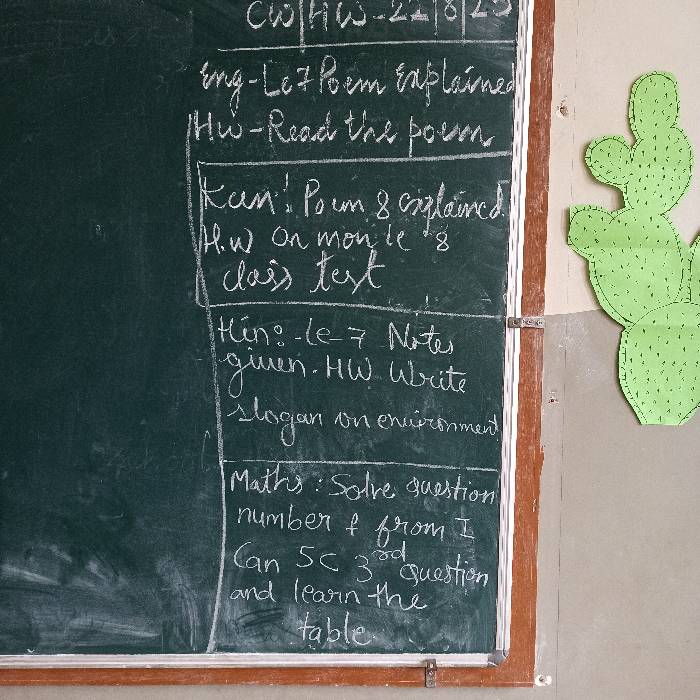 CW|HW-22|8|25
Eng-Le7 Poem Explained
HW-Read the poem
Kan: Poem 8 explained
H.W on mon le 8
class test
Hin:-le-7 Notes
given. HW Write
slogan on environment
Maths: Solve question
number f from I
Can 5C 3rd question
and learn the
table.